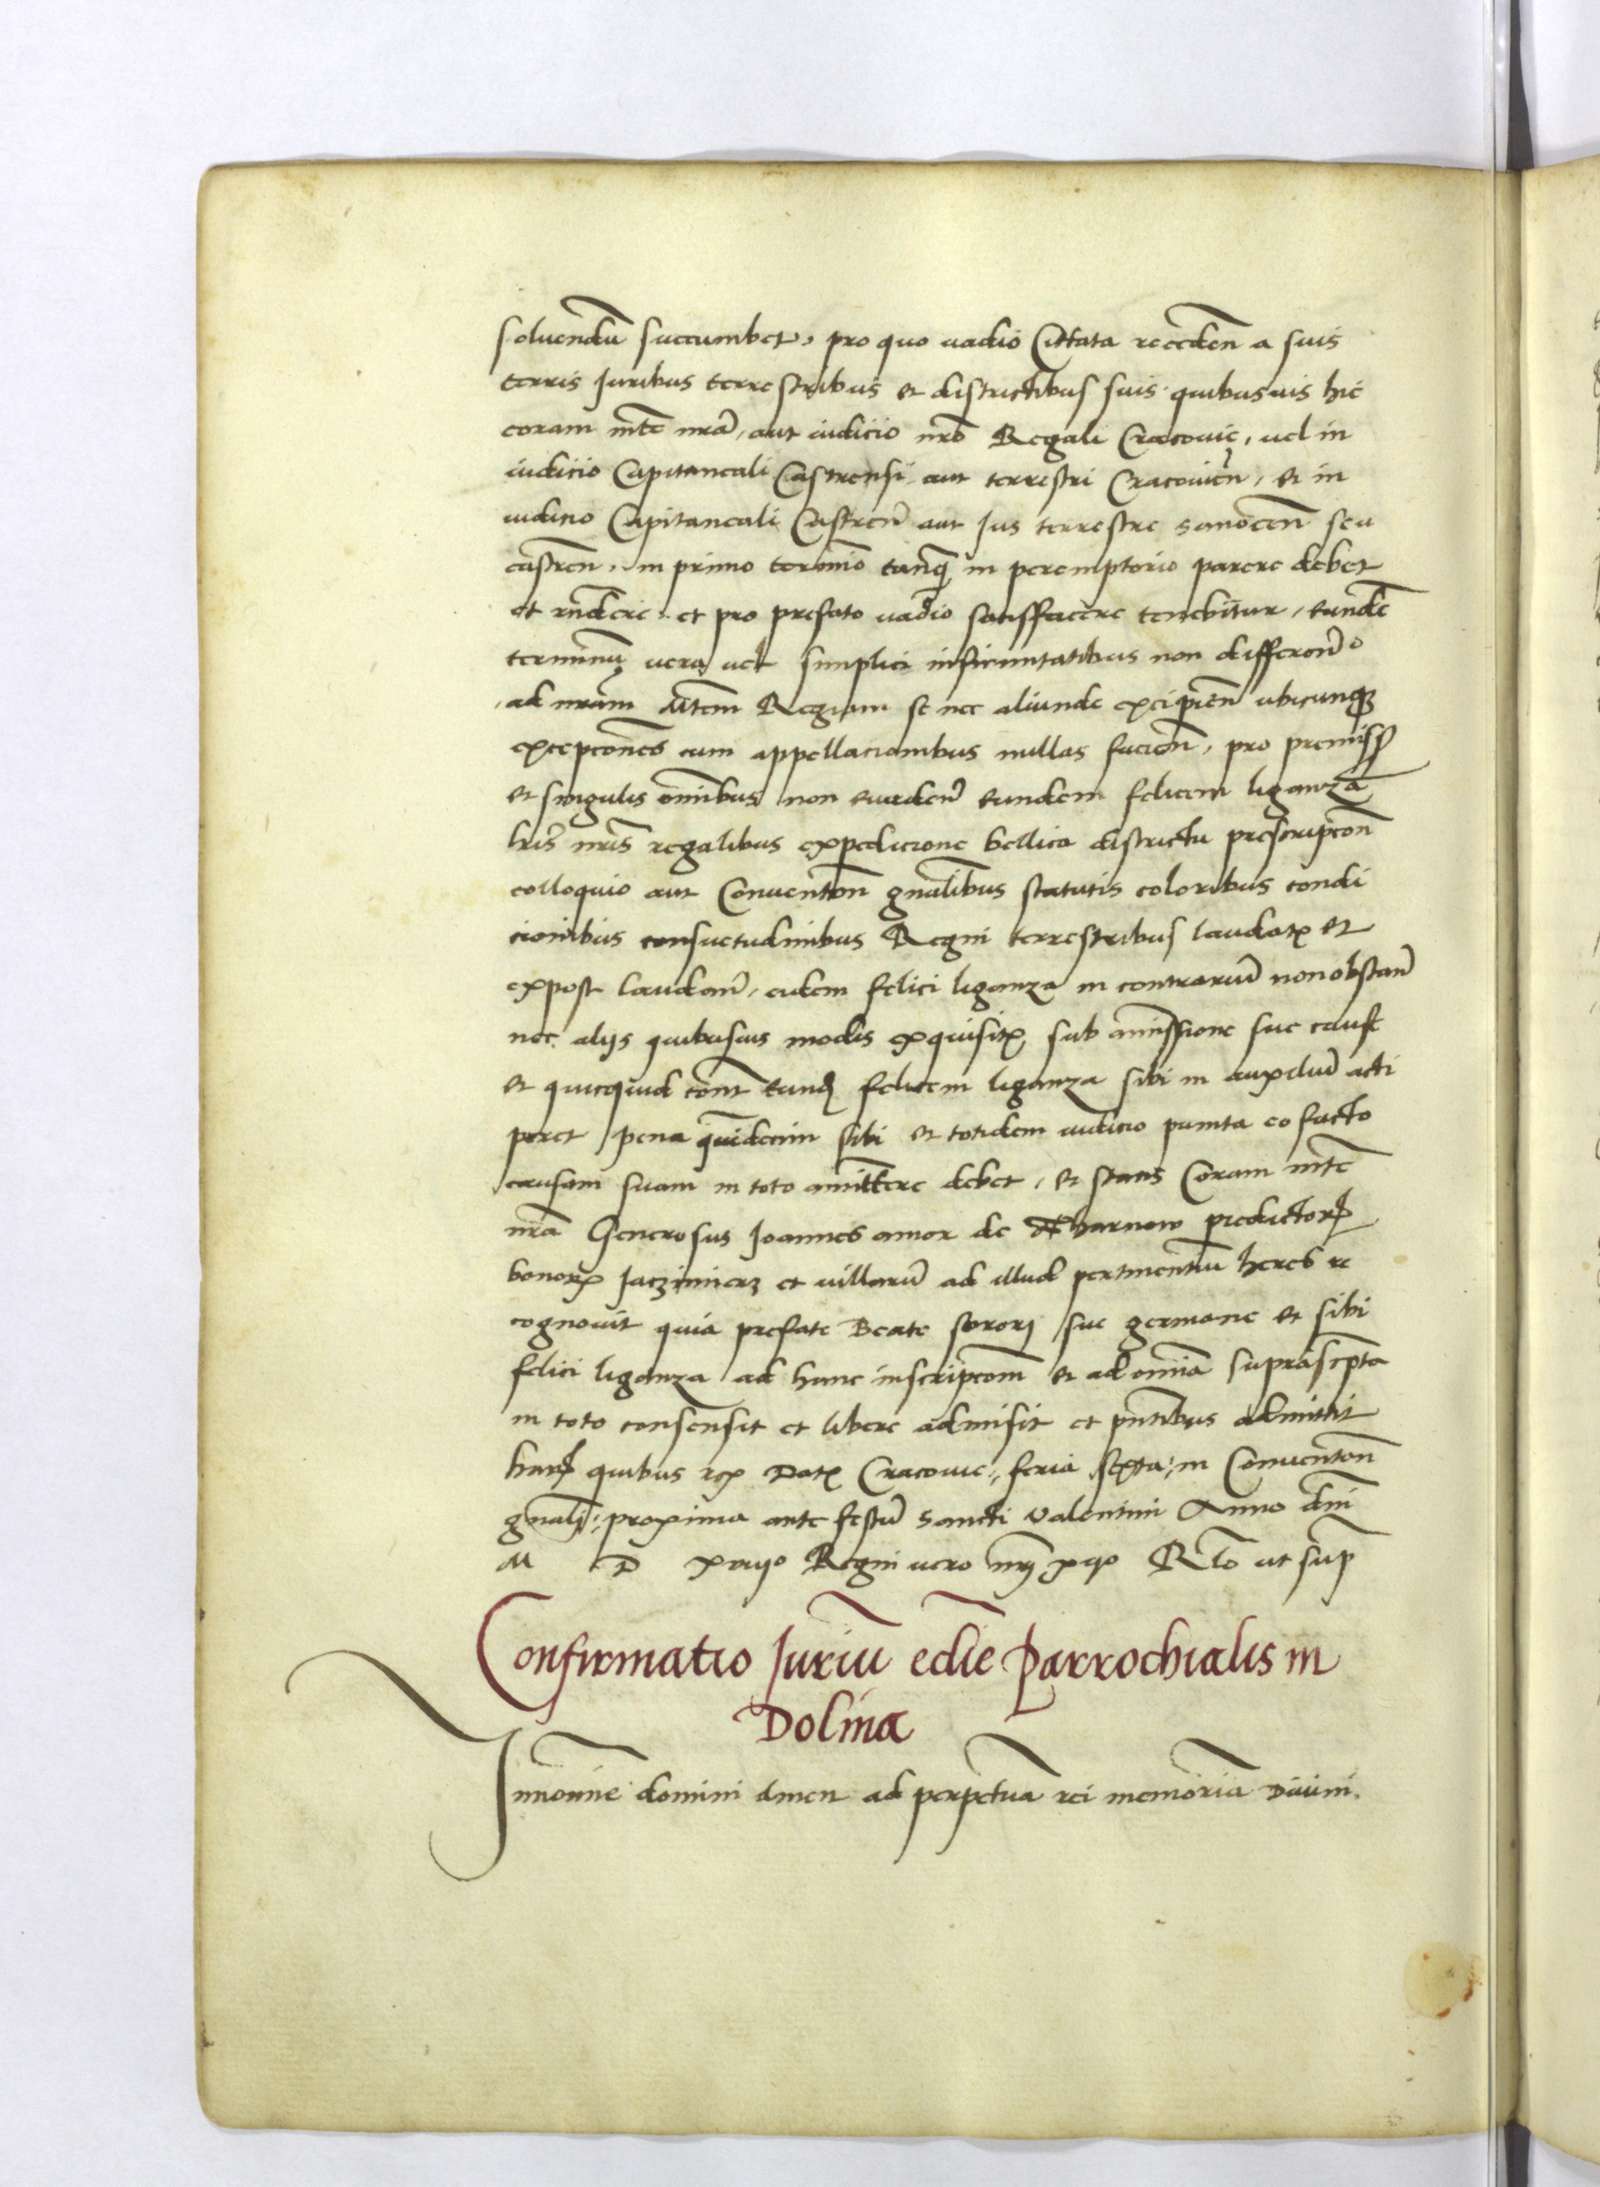 soluendū succumbet, pro quo uadio Cittata receden̄ a suis
terris Juribus terrestribus et districtibus suis quibusuis hic
coram mt̄e nrā, aut iudicio nrō Regali Cracouie, uel in
iudicio Capitaneali Castrensi aut terrestri Cracouien̄, et in
iudicio Capitaneali Castren̄ aut Jus terrestre sanocen̄ seu
castren̄, in primo termīo tanq̄ in peremptorio parere debet
et rn̄dere et pro prefato uadio satisffacere tenebitur, eundē
terminū uera uel simplici infirmitatibus non differen̄
ad nram̄ Mtem̄ Regiam se nec aliunde excipien̄ ubicunq
excepcones cum appellacionibus nullas facien̄, pro premiss
et singulis om̄ibus non euaden̄ eundem felicem liganza
lris̄ nris̄ regalibus expedicione bellica districtu prescripcon̄
colloquio aut Conuencon̄ gnālibus statutis coloribus condi
cionibus consuetudinibus Regni terrestribus laudatꝭ et
expost laudan̄, eidem felici liganza in contrariū non obstan̄
nec alijs quibusuis modis exquisitꝭ sub amissione sue cause
et quicquid cont̄ eund felicem liganza sibi in auxiliū acti
peret pena quidem sibi et totidem iudicio punita eo facto
causam suam in toto amittere debet, et stans Coram mt̄e
nrā Generosus Joannes amor de Tharnow predictorꝭ
bonorꝭ Jaczimierz et uillarū ad illud pertinentiū heres re
cognouit quia prefate Beate sorori sue germane et sibi
felici liganza ad hanc inscripcom̄ et ad omīa suprascpta
in toto consensit et libere admisit et pn̄tibus admittit
harꝭ quibus rex Datꝭ Cracouie, feria sexta, in Conuencon̄
gnāli, proxima ante festū Sancti Valentini Anno dn̄i
M D xviiº Regni uero nri xiº Rlō ut sup
Confirmatio Juriū ecclīe Parrochialis in
Dolina
Jn nomine domini Amen ad perpetuā rei memoriā Diuini